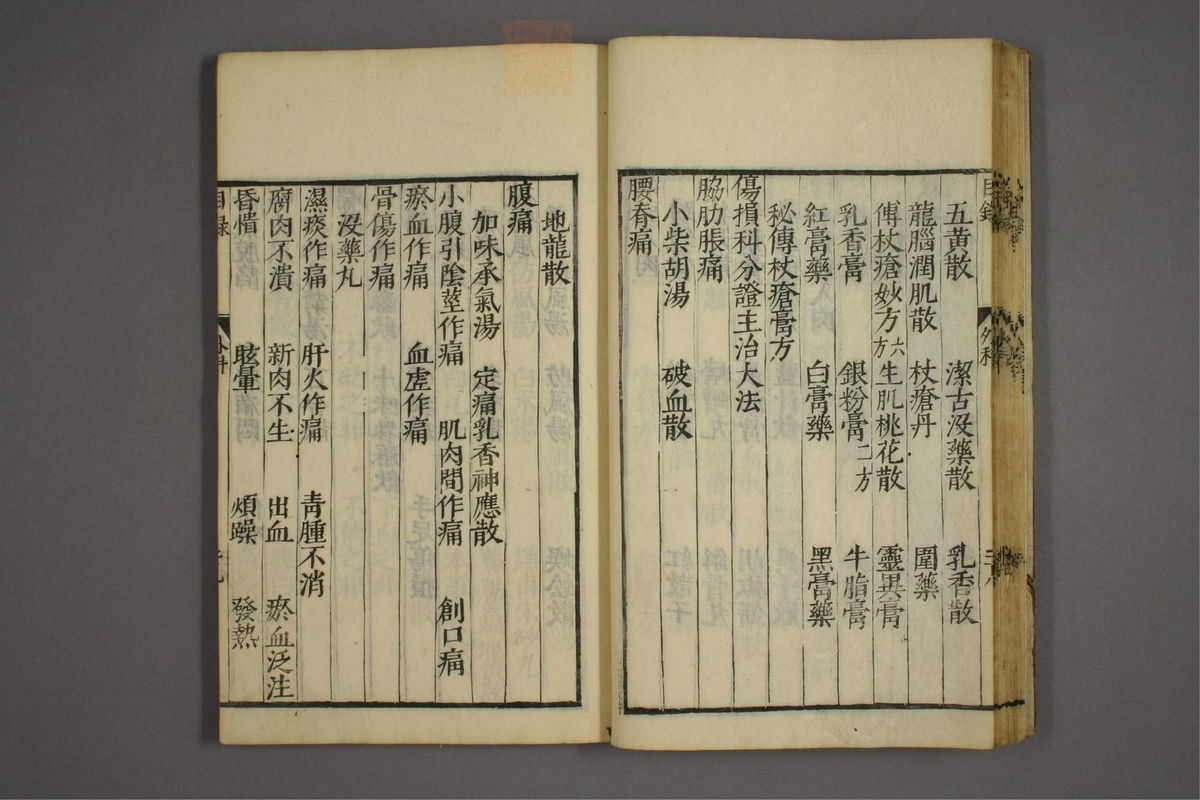 五黃散 潔古没藥散 乳香散
龍腦潤肌散 杖瘡丹 圍藥
傳杖瘡妙方六方 生肌桃花散 靈異膏
乳香膏 銀粉膏二方 牛脂膏
紅膏藥 白膏藥 黑膏藥
秘傳杖瘡膏方
傷損科分證主治大法
脇肋脹痛
小柴胡湯 破血散
腰脊痛
地龍散
腹痛
加味承氣湯 定痛乳香神應散
小腹引陰莖作痛 肌肉間作痛 創口痛
瘀血作痛 血虛作痛
骨傷作痛
没藥丸
濕痰作痛 肝火作痛 青腫不消
腐肉不潰 新肉不生 出血 瘀血泛注
昏憒 眩暈 煩躁 發熱
目錄